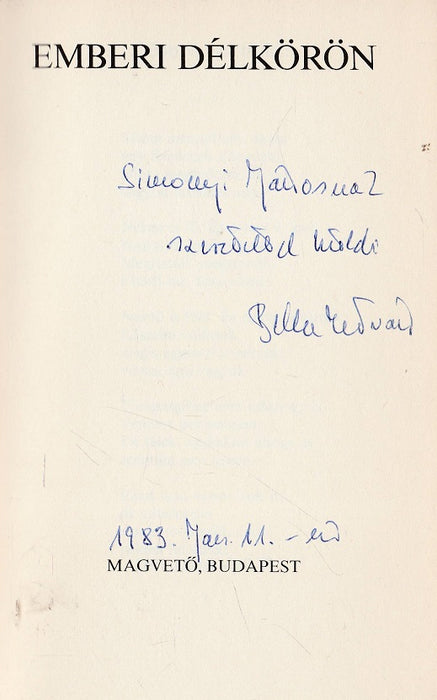 EMBERI DÉLKÖRÖN
Simonyi Jánosnak
szeretettel küldi
Bella Yedvard
1983. Jan. 11. -én
MAGVETŐ, BUDAPEST